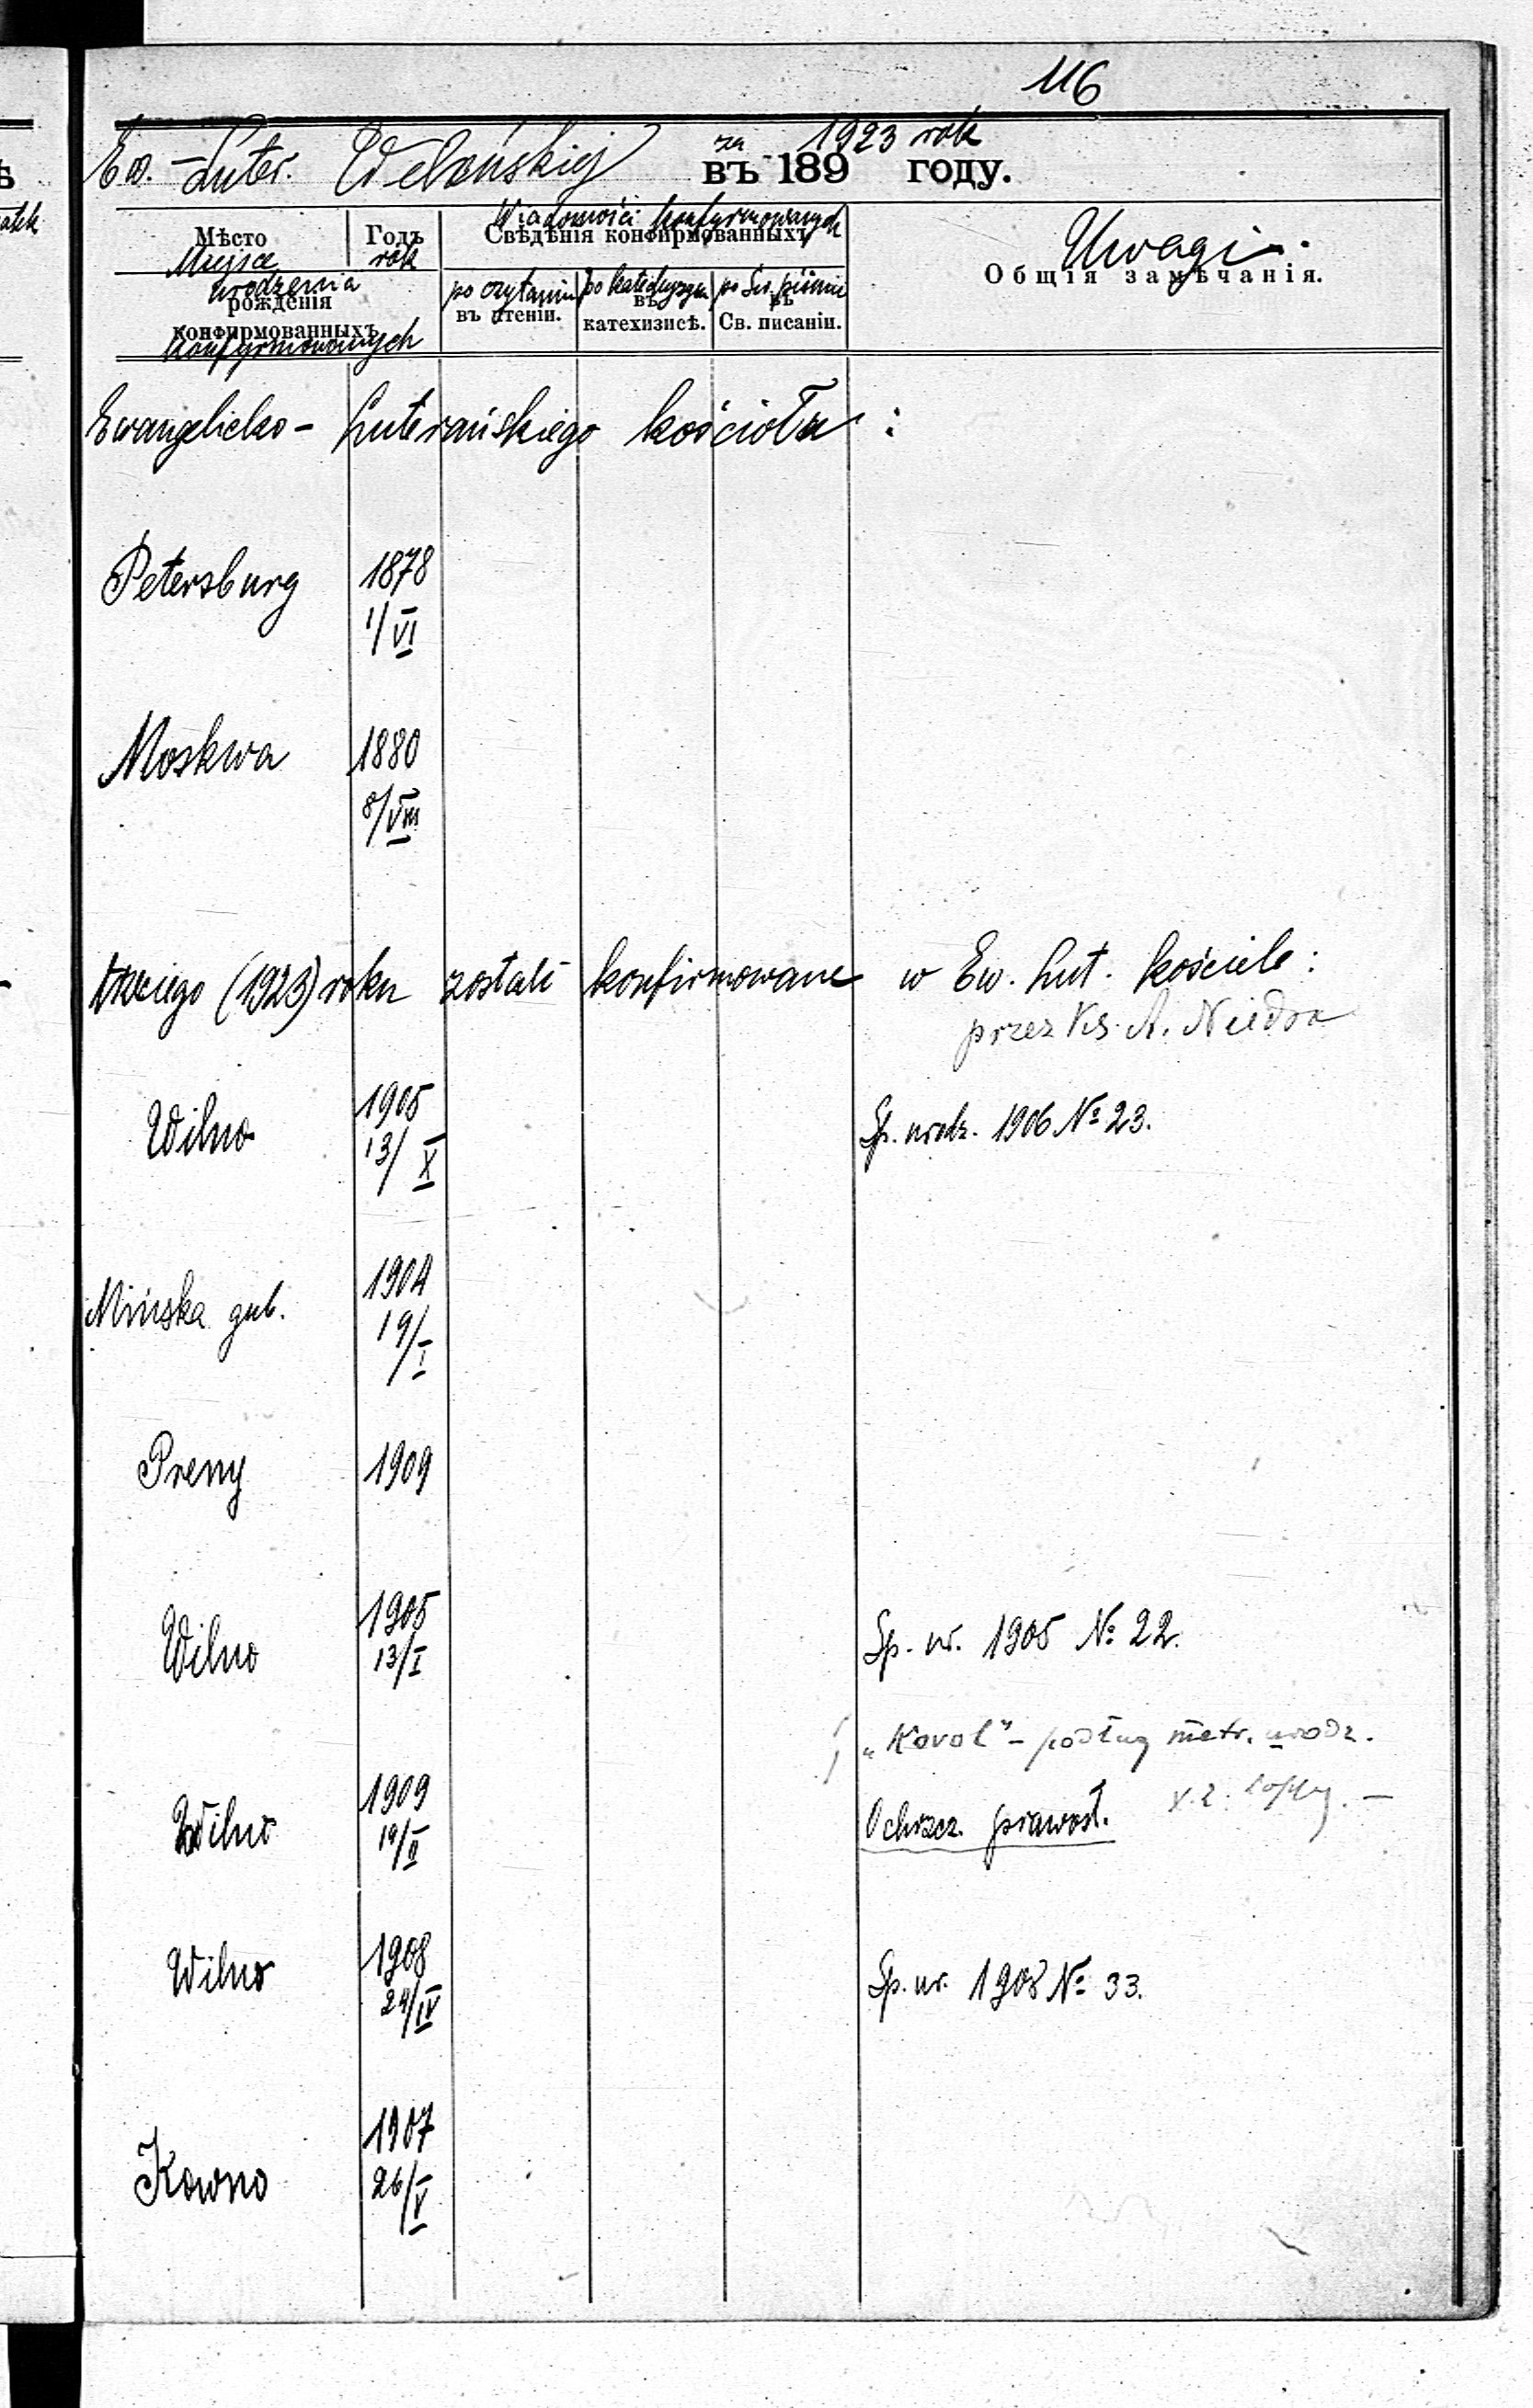 116
Ew.-Luter. Wileńskiej za 1923 rok
въ 189 году.
Wiadomości konfyrmowanych
Мѣсто Годъ Свѣдѣнія конфирмованныхъ Uwagi.
Miejsce rok Общія замѣчанія.
urodzenia po czytaniu po katechyzm. po Św. piśmie
рожденія въ чтеніи. въ катехизисѣ. въ Св. писаніи.
конфирмованныхъ
konfyrmowanych
Ewangelicko- Luterańskiego kościoła:
Petersburg 1878
1/VI
Moskwa 1880
8/VIII
(1923) roku zostali konfirmowane w Ew. Lut. kościele:
przez Ks. A. Niedra
Wilno 1905 Sp. urodz. 1906 № 23.
13/X
Mińska gub. 1904
19/I
Preny 1909
Wilno 1905 Sp. ur. 1905 № 22.
13/I
"Korol" - podług metr. urodz.
Wilno 1909 Ochrzcz. prawosł.
19/II
Wilno 1908 Sp. ur. 1908 № 33.
24/IV
Kowno 1907
26/V